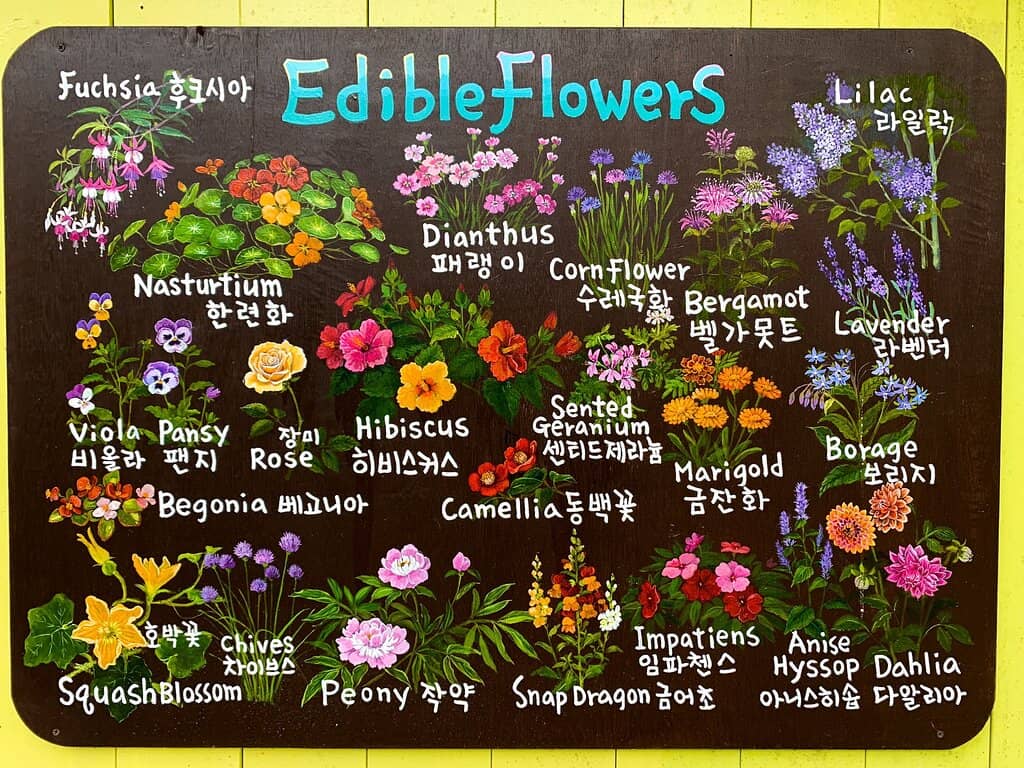 Edible Flowers
Fuchsia 후크시아
Lilac
라일락
Dianthus
패랭이
Cornflower
수레국화
Bergamot
벨가못트
Nasturtium
한련화
Lavender
라벤더
Viola Pansy
비올라 팬지
장미
Rose
Hibiscus
히비스커스
Sented
Geranium
센티드제라늄
Marigold
금잔화
Borage
보리지
Begonia 베고니아
Camellia 동백꽃
호박꽃
Squash Blossom
Chives
차이브스
Peony 작약
Snap Dragon 금어초
Impatiens
임파첸스
Anise
Hyssop
아니스히솝
Dahlia
다알리아